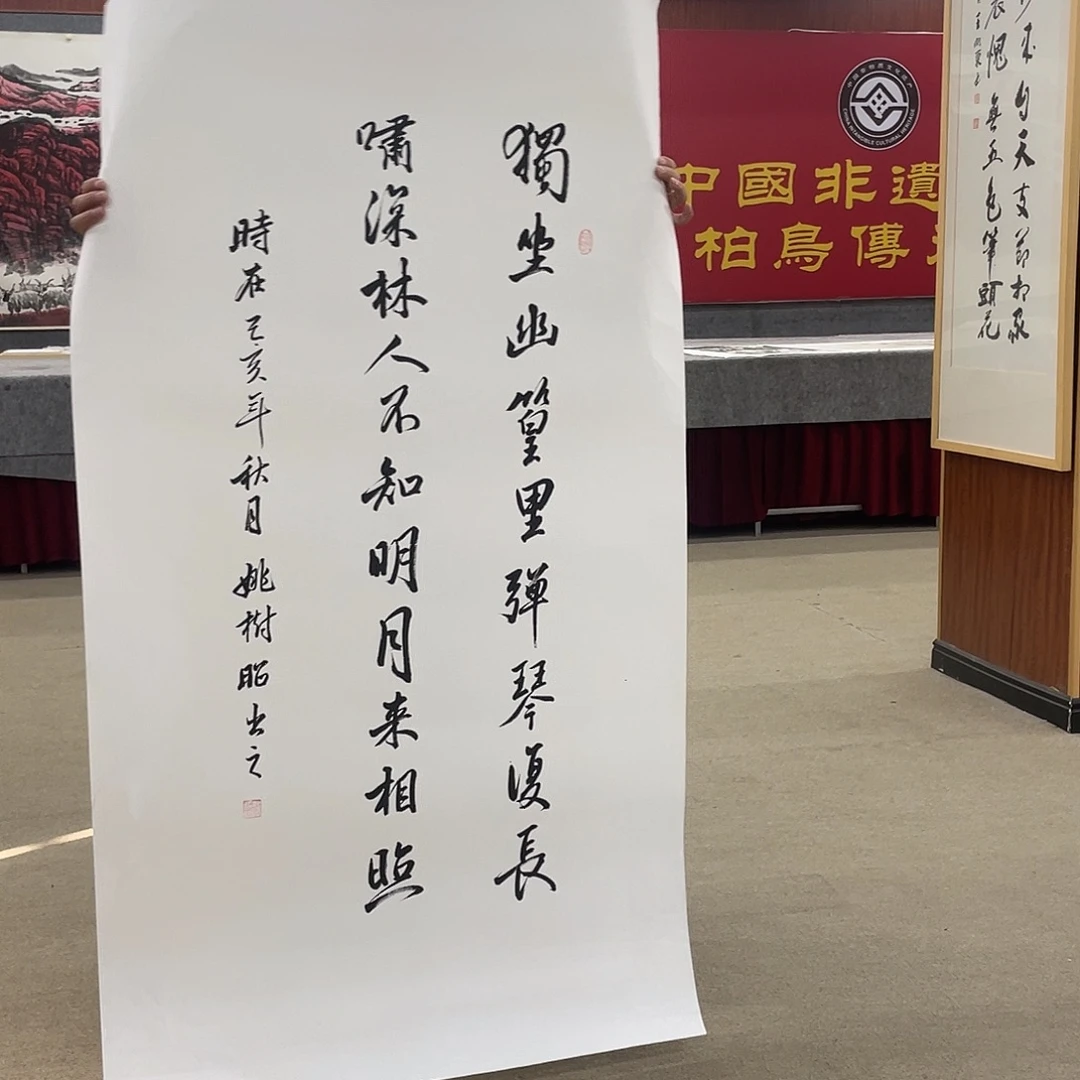 獨坐幽篁里彈琴復長
嘯深林人不知明月来相照
時在己亥年秋月姚樹昭书之
中國非遺
柏鳥傳
CHINA INTANGIBLE CULTURAL HERITAGE
来自天支節相承
愧無五色筆頭花